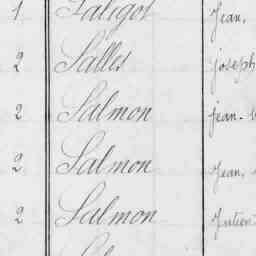 1 Saligot Jean,
2 Salles Joseph
2 Salmon Jean-
2 Salmon Jean,
2 Salmon Julien